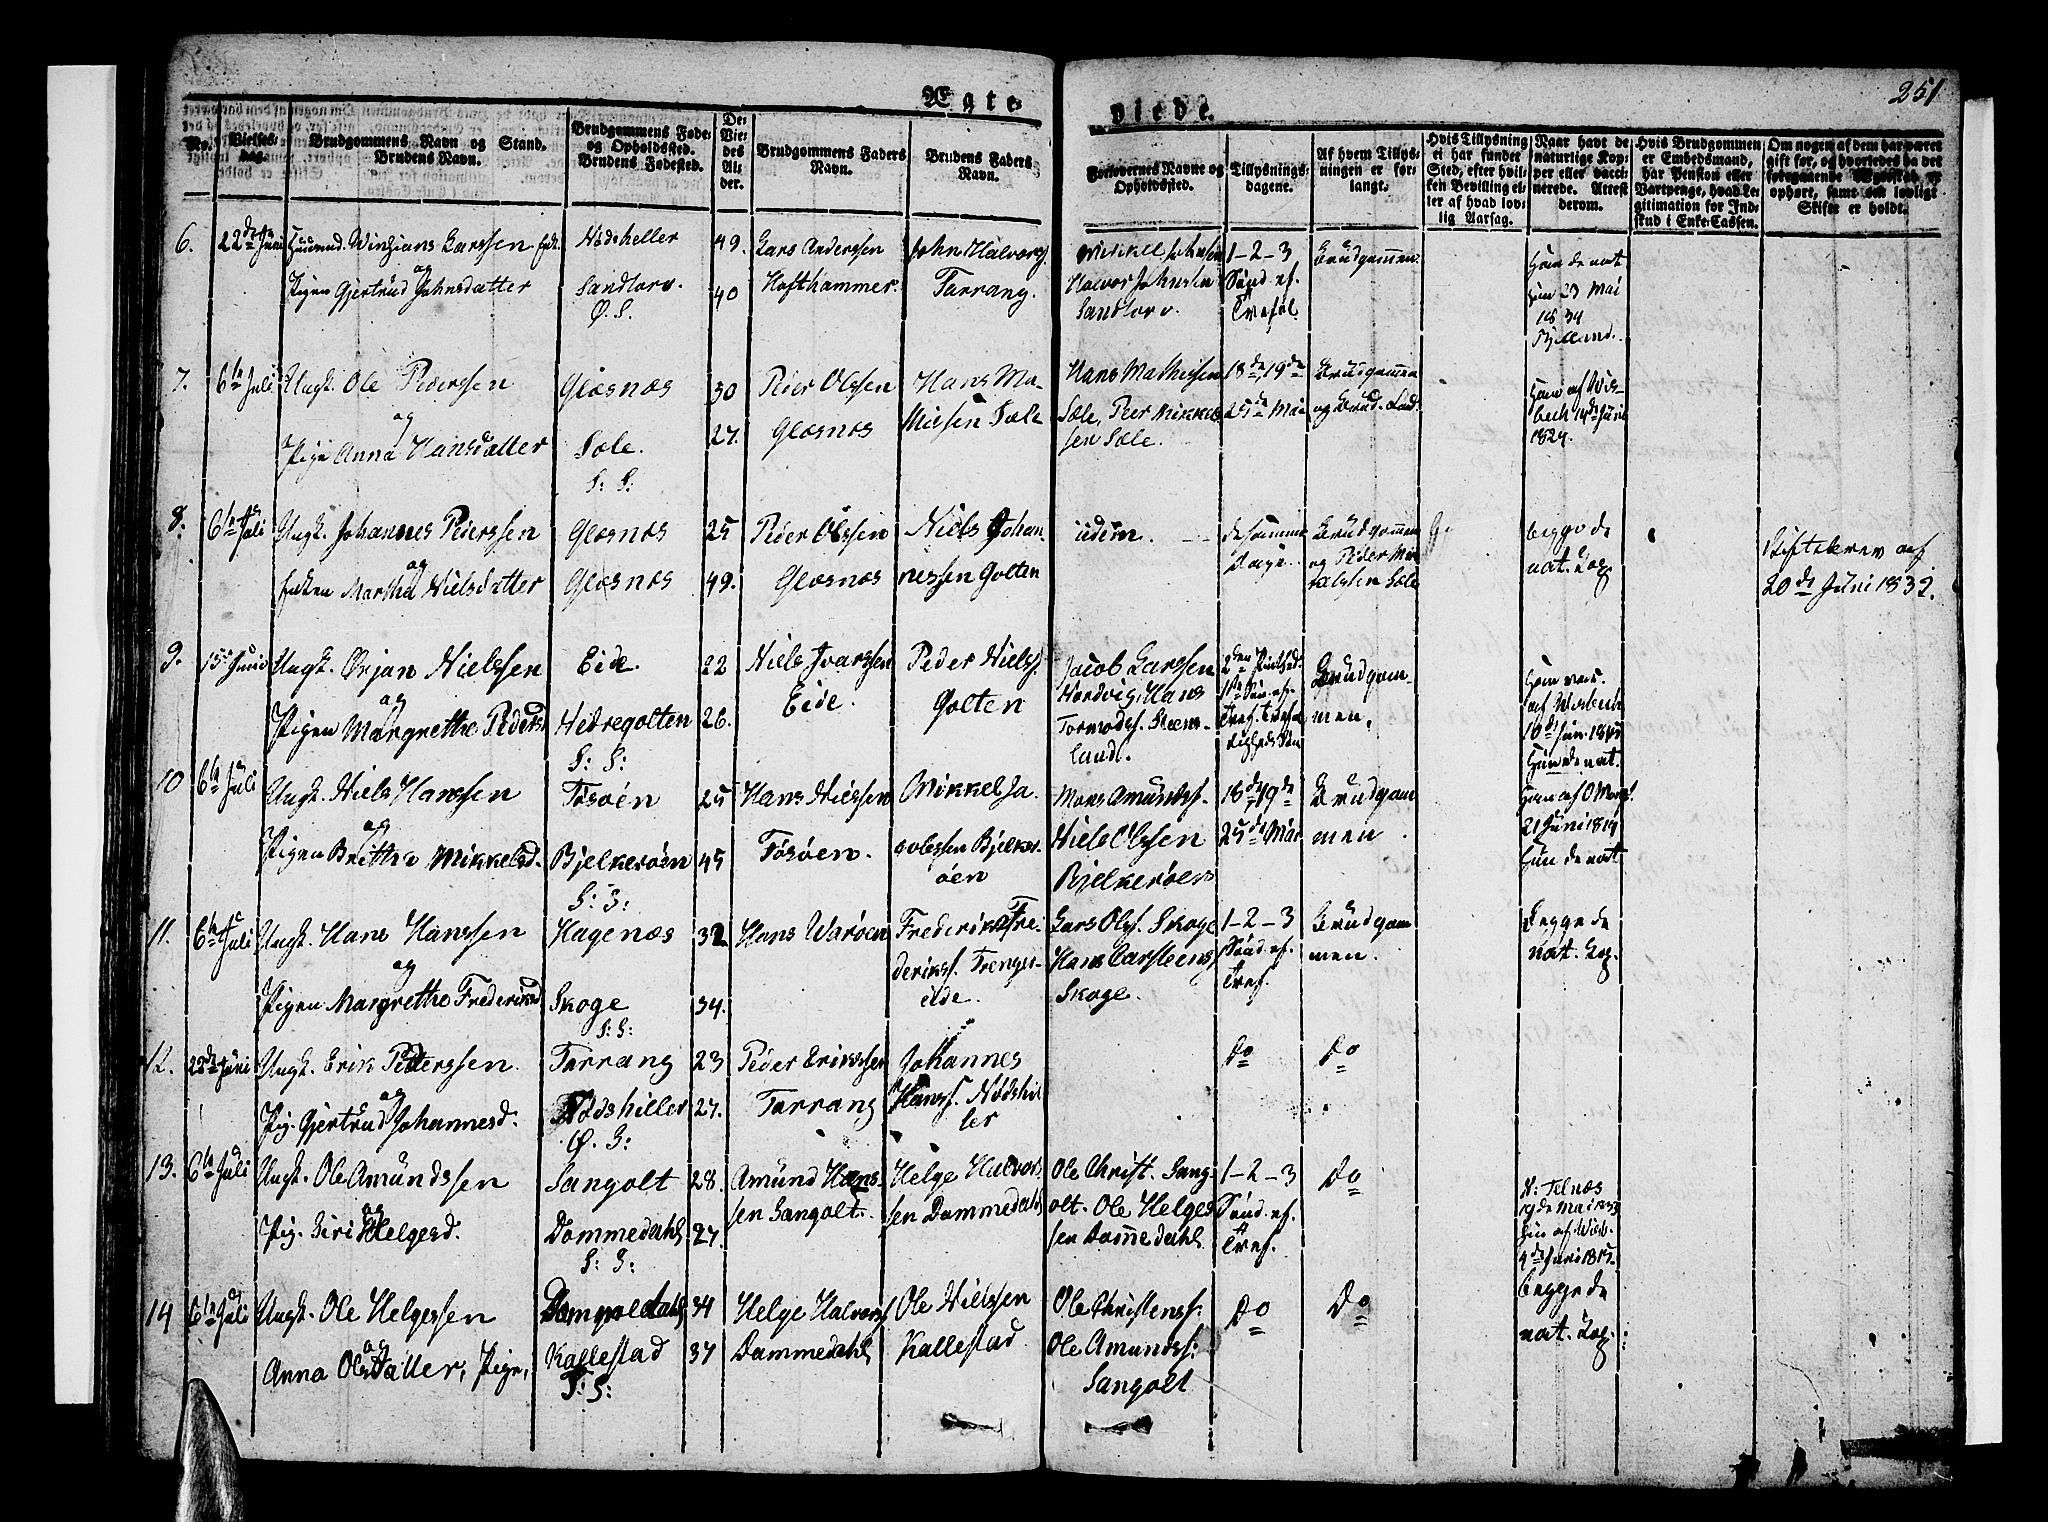 251
Ægte-
viede.
No.
Vielses-
dag.
Brudgommens Navn og Stand.
Brudens Navn.
Brudgommens Føde-
og Opholdssted.
Brudens Fødested.
De
Vie-
des
Al-
der.
Brudgommens Faders
Navn.
Brudens Faders
Navn.
Forlovernes Navne og
Opholdssted.
Tillysnings-
dagene.
Af hvem Tillys-
ningen er for-
langt.
Hvis Tillysning
ei har fundet
Sted, efter hvil-
ken Bevilling el-
ler af hvad lov-
lig Aarsag.
Naar havt de
naturlige Kop-
per eller vacci-
nerede. Attest
derom.
Hvis Brudgommen
er Embedsmand,
har Pension eller
Vartpenge, hvad Le-
gitimation for Ind-
skud i Enke-Cassen.
Om nogen af dem har været
gift før, og hvorledes da det
foregaaende Ægteskab er
ophørt, samt om lovligt
Skifte er holdt.
6.
22de Juni
Larssen
og
Pigen Gjertrud Johnsdatter
Nødsheller
Sandtorv.
Ø. S.
49.
40
Lars Anderssen
Hofthammer.
John Halvors.
Tarrang.
Mikkel Johnsen
Halvor Johnsen
Sandtorv.
1-2-3
Sønd. ef.
Trefol.
Brudgommen
Ham de nat.
Hun 23 Mai
1834
7.
6te Juli
Ungk. Ole Pederssen
og
Pige Anna Hansdatter
Glæsnæs
Sæle.
S: S:
30
27.
Peder Olssen
Glæsnæs
Hans Ma-
thiesen Sæle
Hans Mathissen
Sæle, Peer Mikkel-
sen Sæle.
18de, 19de
25de Mai
Brudgommen
og
Ham af Wis-
bech 14de Juni
1824.
8.
6te Juli
Ungk. Johannes Pederssen
og
Enken Martha Nielsdatter
Glæsnæs
Glæsnæs
25
49.
Peder Olssen
Glæsnæs
Niels Johan-
nessen Golten
iidem.
de samme
Dage.
Brudgommen
og Peder
Sæle
begge de
nat. Kop.
Skiftebrev af
20de Juni 1832.
9.
15. Juni
Ungk. Ørjan Nielssen
og
Pigen Margrethe Peders
Eide
Hedregolten
S: S:
22
26.
Niels Ivarssen
Eide.
Peder Niels.
Golten
Jacob Larssen
Nordvig, Hans
Tormods. Steens-
land.
2den
Brudgom-
men.
Ham
af Wisbech
Hun de nat.
10
6te Juli
Ungk. Niels Hanssen
og
Pigen Brithe Mikkelsd.
Tøsøen
Bjelkerøen
S: S:
25
45
Hans Nielssen
Tøsøen.
Mikkel Ja-
cobssen Bjelker-
øen
Mons Amunds.
Niels Olssen
Bjelkerøen
18de 19de
25de Mai
Brudgom
men.
21 Juni
Hun de nat
11.
6te Juli
Ungk. Hans Hanssen
og
Pigen Margrethe Frederiksd
Hagenæs
Skoge
S: S:
32
34.
Hans Warøen
Frederik Fre-
deriks.
Lars Ols. Skoge
Hans Carsteens.
Skoge.
1-2-3
Sønd. ef.
Tref.
Brudgom
men.
Begge de
nat. Kop.
12.
22de Juni
Ungk. Erik Pederssen
og
Pig. Gjertrud Johannesd.
Tarrang
Nødsheller
Ø. S:
23
27.
Peder Erikssen
Tarrang
Johannes
Hanss. Nødshel
ler
do
do
13.
6te Juli
Ungk. Ole Amundssen
og
Pig. Siri Helgesd.
Sangolt
Dommedahl
S: S:
28.
27.
Amund Hans-
sen Sangolt.
Helge Halvor-
sen Dommedahl
Ole Christ. Sang-
olt. Ole Helges-
sen Dommedahl.
1-2-3
Sønd. ef.
Tref.
do
N: Telnæs
Hun af Wisb.
14
6te Juli
Ungk. Ole Helgessen
og
Anna Olsdatter, Pige,
Dommedahl
Kallestad
S: S:
34
37
Helge Halvors.
Dammedahl
Ole Nielssen
Kallestad
Ole Christens:
Ole Amunds:
Sangolt
do
do
begge de
nat. Kop.